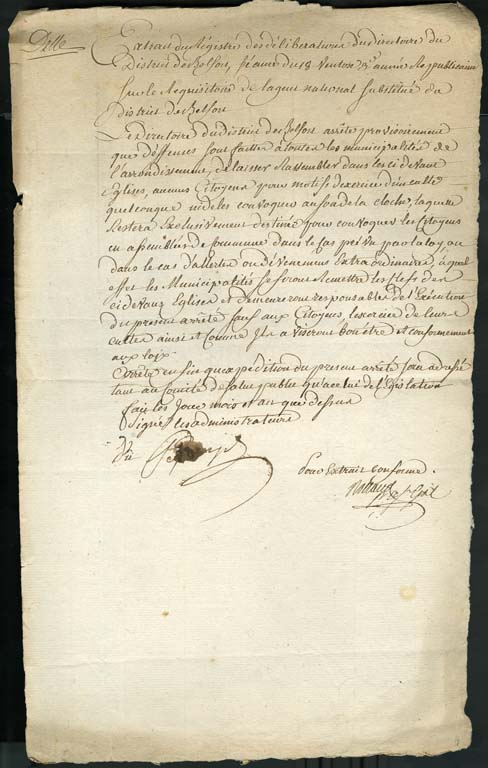 Delle
Extrait du Régistre des déliberations du directoire du
District de Belfort, séance du 18 Ventose 3e année Republicaine
Sur le Requisitoire de lagent national Substitué du
District de Belfort
Le directoire du district de Belfort arrête provisoirement
que déffenses sont faittes à toutes les municipalités de
l'arrondissement, de laisser Rassembler dans les cidevant
Eglises, aucuns Citoyens pour motif dexercice d'un culte
quelconque ni de les convoquer au son de la cloche, laquelle
Restera Exclusivement destinée pour convoquer les Citoyens
en assemblées de Commune dans le cas prévu par la loy, ou
dans le cas d'allerte ou d'événemens Extraordinaires, à quel
effet les Municipalités se feront Remettre les clefs des
cidevant Eglises et demeureront responsables de l'Exécution
du present arrêté sauf aux Citoyens, l'exercice de leurs
cultes ainsi et comme Ils aviseront bon être et conformément
aux loix
arrête en fin qu'expédition du present arrêté sera adressé
tant au Comité de salut public qu'a celui de Législation
fait les Jour mois et an que dessus
Signé les administrateurs
Vu
pour Extrait conforme.